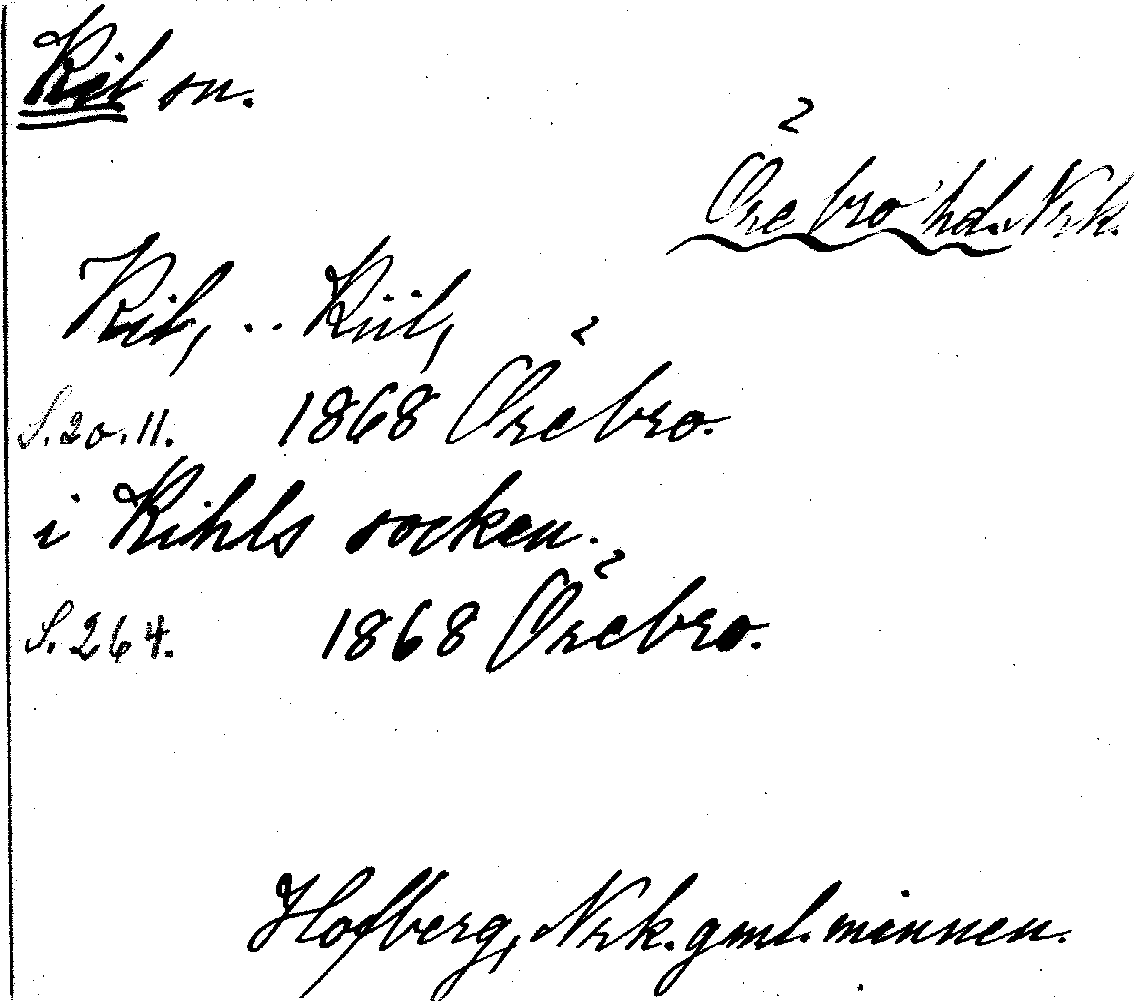 Kil sn.
Örebro hd. Nrk.
Kil, .. Kiil,
S. 20. 11. 1868 Örebro.
i Kihls socken.
S. 264. 1868 Örebro.
Hofberg, Nrk. gml. minnen.